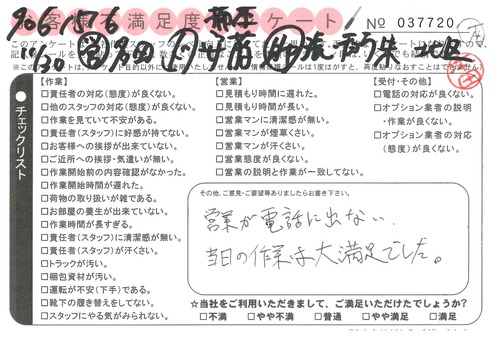 お客様不満足度アンケート
No 037720
906-1576
11/30
チェックリスト
【作業】
□責任者の対応(態度)が良くない。
□他のスタッフの対応(態度)が良くない。
□作業を見ていて不安がある。
□責任者(スタッフ)に好感が持てない。
□お客様への挨拶が出来ていない。
□ご近所への挨拶・気遣いが無い。
□作業開始前の内容確認がなかった。
□作業開始時間が遅れた。
□荷物の取り扱いが雑である。
□お部屋の養生が出来ていない。
□作業時間が長すぎる。
□責任者(スタッフ)に清潔感が無い。
□責任者(スタッフ)が汗くさい。
□トラックが汚い。
□梱包資材が汚い。
□運転が不安(下手)である。
□靴下の履き替えをしてない。
□スタッフにやる気がみられない。
【営業】
□見積もり時間に遅れた。
□見積もり時間が長い。
□営業マンに清潔感が無い。
□営業マンが煙草くさい。
□営業マンが汗くさい。
□営業態度が良くない。
□営業の説明と作業が一致してない。
【受付・その他】
□電話の対応が良くない。
□オプション業者の説明
・作業が良くない。
□オプション業者の対応
(態度)が良くない。
その他、ご意見・ご要望等ありましたらお書き下さい。
営業が電話に出ない。
当日の作業は大満足でした。
☆当社をご利用いただきまして、ご満足いただけたでしょうか?
□不満 □やや不満 □普通 □やや満足 □満足